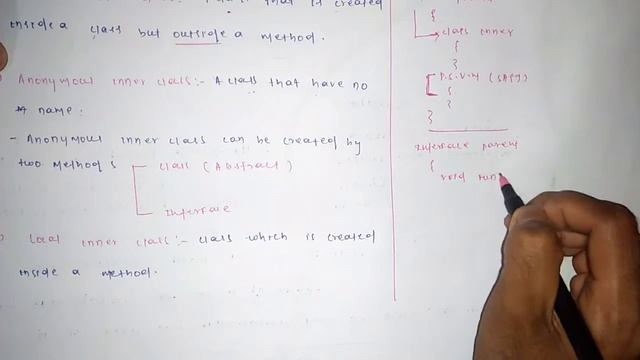 that is created
inside a class but outside a method.
Anonymous inner class:- A class that have no
name.
- Anonymous inner class can be created by
two methods
class (Abstract)
Interface
Local inner class:- class which is created
inside a method.
{
class inner
{
}
P.S.V.M (SA[])
{
}
}
Interface parent
{
void run